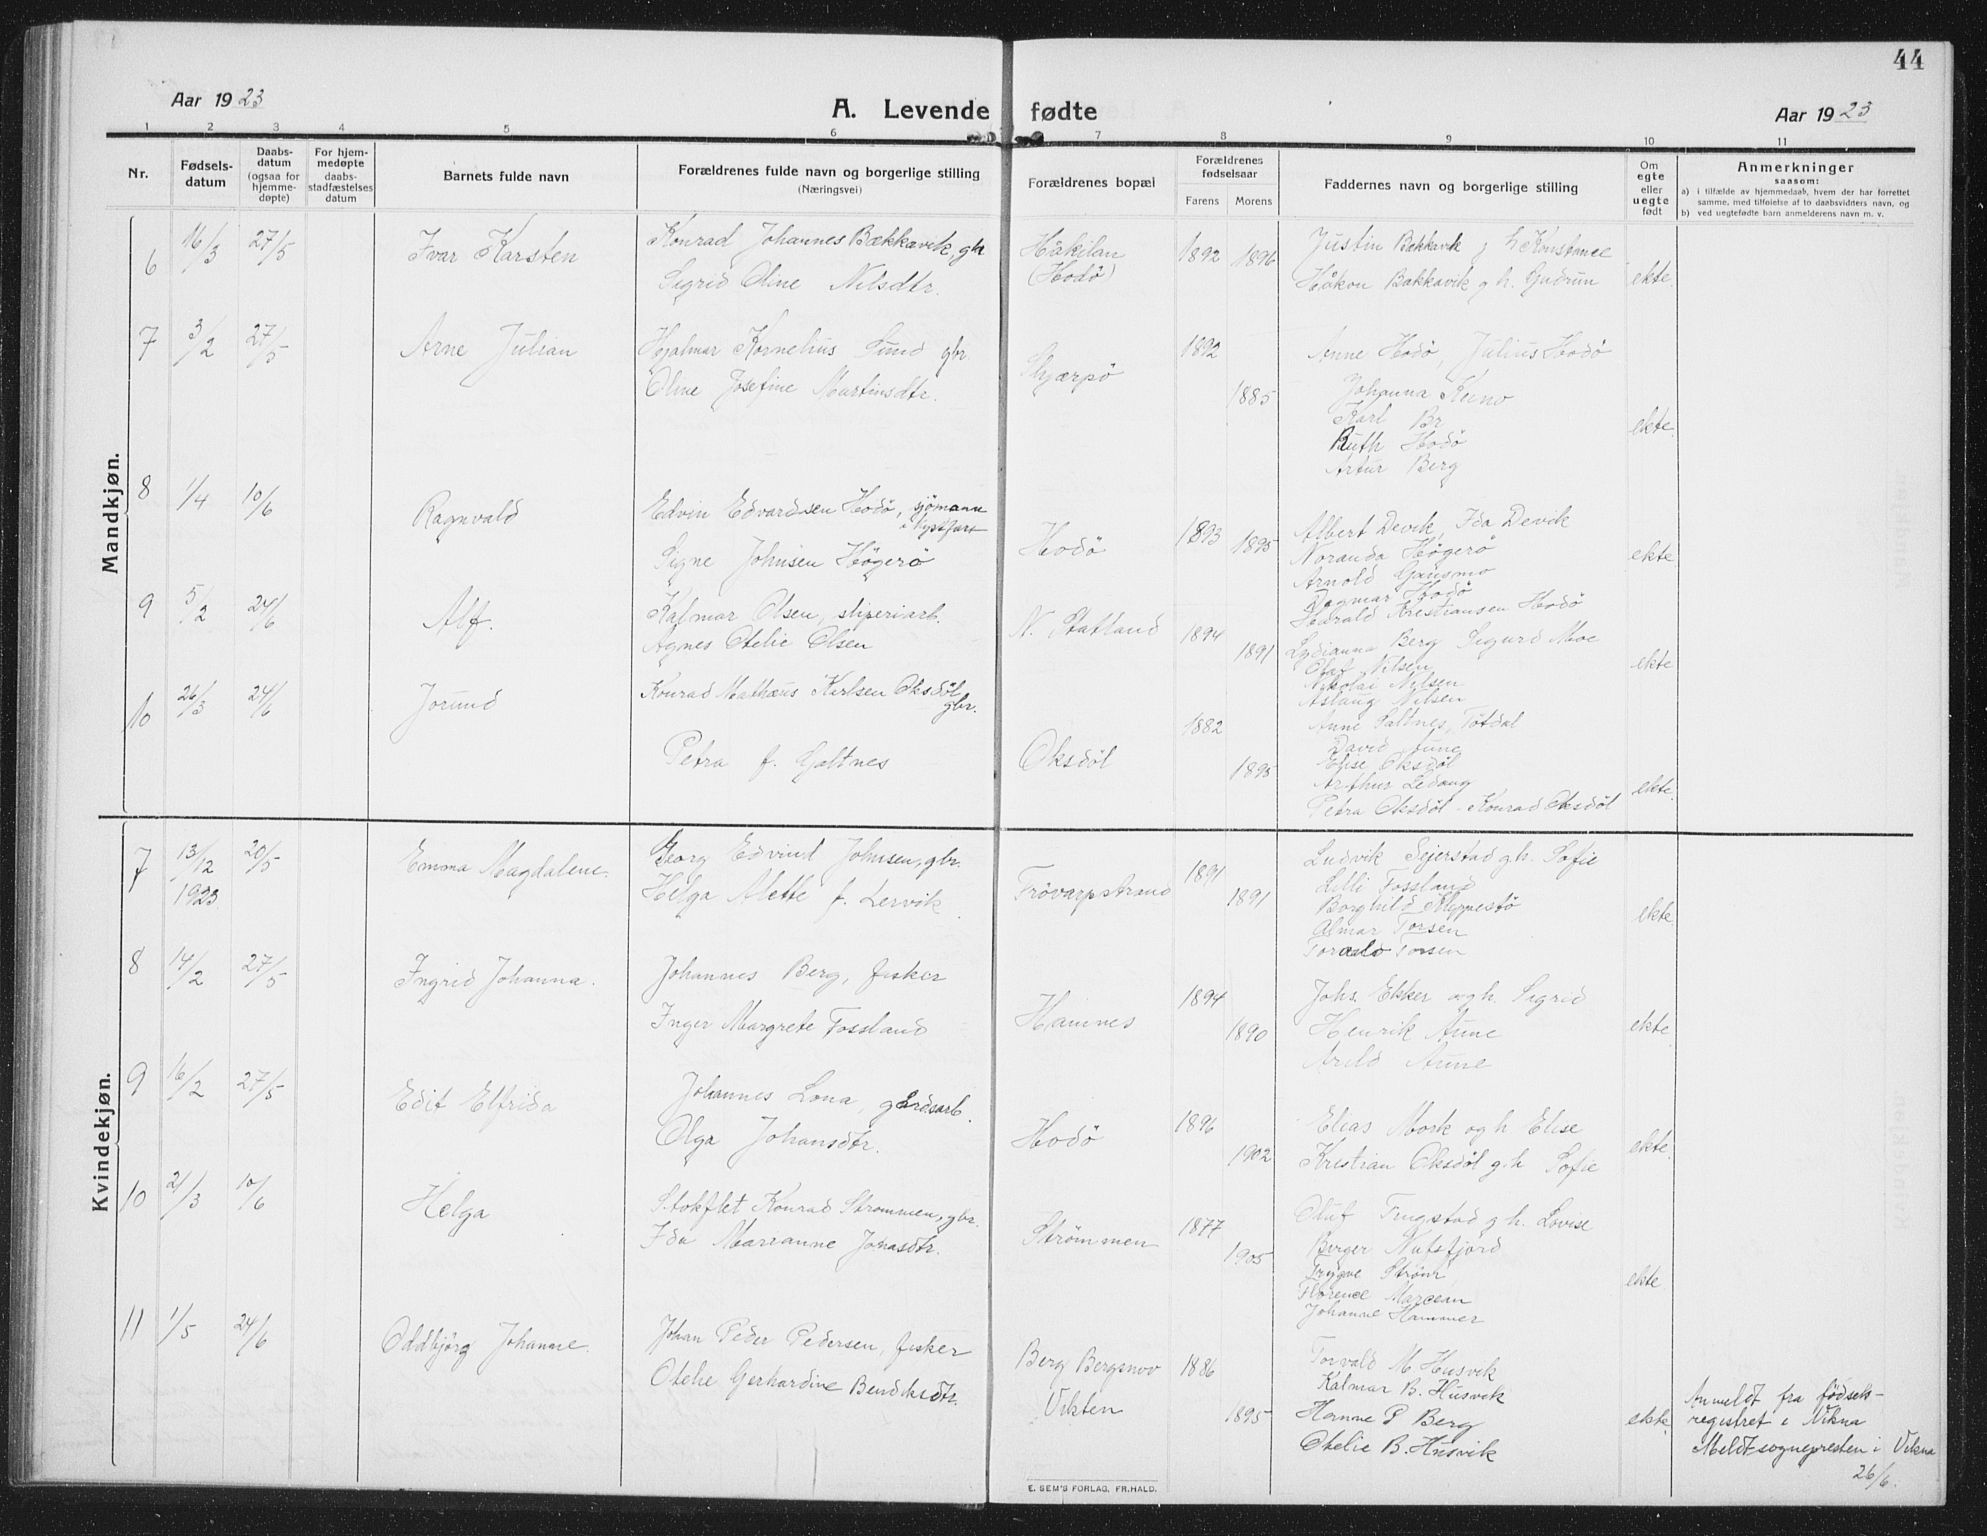 44
Aar 1923
A. Levende fødte
Aar 1923
1 2 3 4 5 6 7 8 9 10 11
Nr.
Fødsels-
datum
Daabs-
datum
(ogsaa for
hjemme-
døpte)
For hjem-
medøpte
daabs-
stadfæstelses
datum
Barnets fulde navn
Forældrenes fulde navn og borgerlige stilling
(Næringsvei)
Forældrenes bopæl
Forældrenes
fødselsaar
Farens Morens
Faddernes navn og borgerlige stilling
Om
egte
eller
uegte
født
Anmerkninger
saasom:
a) i tilfælde av hjemmedaab, hvem der har forrettet
samme, med tilføielse af to daabsvidners navn, og
b) ved uegtefødte barn anmelderens navn m. v.
Mandkjøn.
6 16/3 27/5 Ivar Karsten
Konrad Johannes Bækkavik, gbr
Sigrid Oline Nilsdtr.
Håkilan
(Hodö)
1892 1896
Justin Bakkavik g h Konstance
Håkon Bakkavik g h. Gudrun
ekte.
7 3/2 27/5 Arne Julian
Hjalmar Kornelius Sund gbr.
Oline Josefine Martinsdtr.
1892
1885
Anne Hodö, Julius Hodö
Johanna
Karl Br
Ruth Hodö
Artur Berg
ekte.
8 1/4 10/6 Ragnvald
Edvin Edvardsen Hodö, sjömann
Signe Johnsen Högerö
Hodö
1893 1895
Albert Devik, Ida Devik
Noranda Högerö
Arnold Gausmo
Dagmar Hodö
Harald Kristiansen Hodö
ekte
9 5/2 24/6 Alf.
Kalmar Olsen, sliperiarb.
Agnes Otelie Olsen
N. Statland
1894
1891
Lydianna Berg Sigurd Moe
Olaf Nilsen
Nikolai Nilsen
Aslaug Nilsen
ekte
10 26/3 24/6 Jorund
Konrad Mathæus Karlsen Oksdöl
gbr.
Petra f. Galtnes
Oksdöl
1882
1895
Anne Saltnes, Totdal
David Aune
Elise Oksdöl
Arthur Ledang
Petra Oksdöl - Konrad Oksdöl
ekte.
Kvindekjøn.
7 13/12 20/5 Emma Magdalene.
1923
Georg Edvind Johnsen, gbr.
Helga Alette f. Lervik
Frövarpstrand
1891
1891
Ludvik Sejerstad g.h. Sofie
Lilli Fossland
Borghild
Almar Torsen
Torsen
ekte
8 14/2 27/5 Ingrid Johanna.
Johannes Berg, fisker
Inger Margrete Fossland
Hamnes
1894
1890
Johs. Ekker og h. Sigrid
Henrik Aune
Arild Aune
ekte
9 16/2 27/5 Edit Elfrida
Johannes Lona, gårdsarb.
Olga Johansdtr.
Hodö
1896
1902
Elias Mork og h Elise
Kristian Oksdöl g.h Sofie
ekte.
10 21/3 10/6 Helga
Stokflet Konrad Strömmen, gbr.
Ida Marianne Jonasdtr.
Strömmen
1877
1905
Oluf Trugstad g h. Lovise
Berger Nufsfjord
Trygve Ström
Florence
Johanne Hammer
ekte
11 1/5 24/6 Oddbjörg Johanne.
Johan Peder Pedersen, fisker
Otelie Gerhardine Bendiksdtr.
Berg Bergsnov
Vikten
1886
1895
Torvald M Husvik
Kalmar B. Husvik
Hanne P Berg
Otelie B. Husvik
ekte.
Anmeldt fra födsels-
registret i Vikna
Meldt sognepresten i Vikna
26/6.
E. SEM'S FORLAG, FR.HALD.